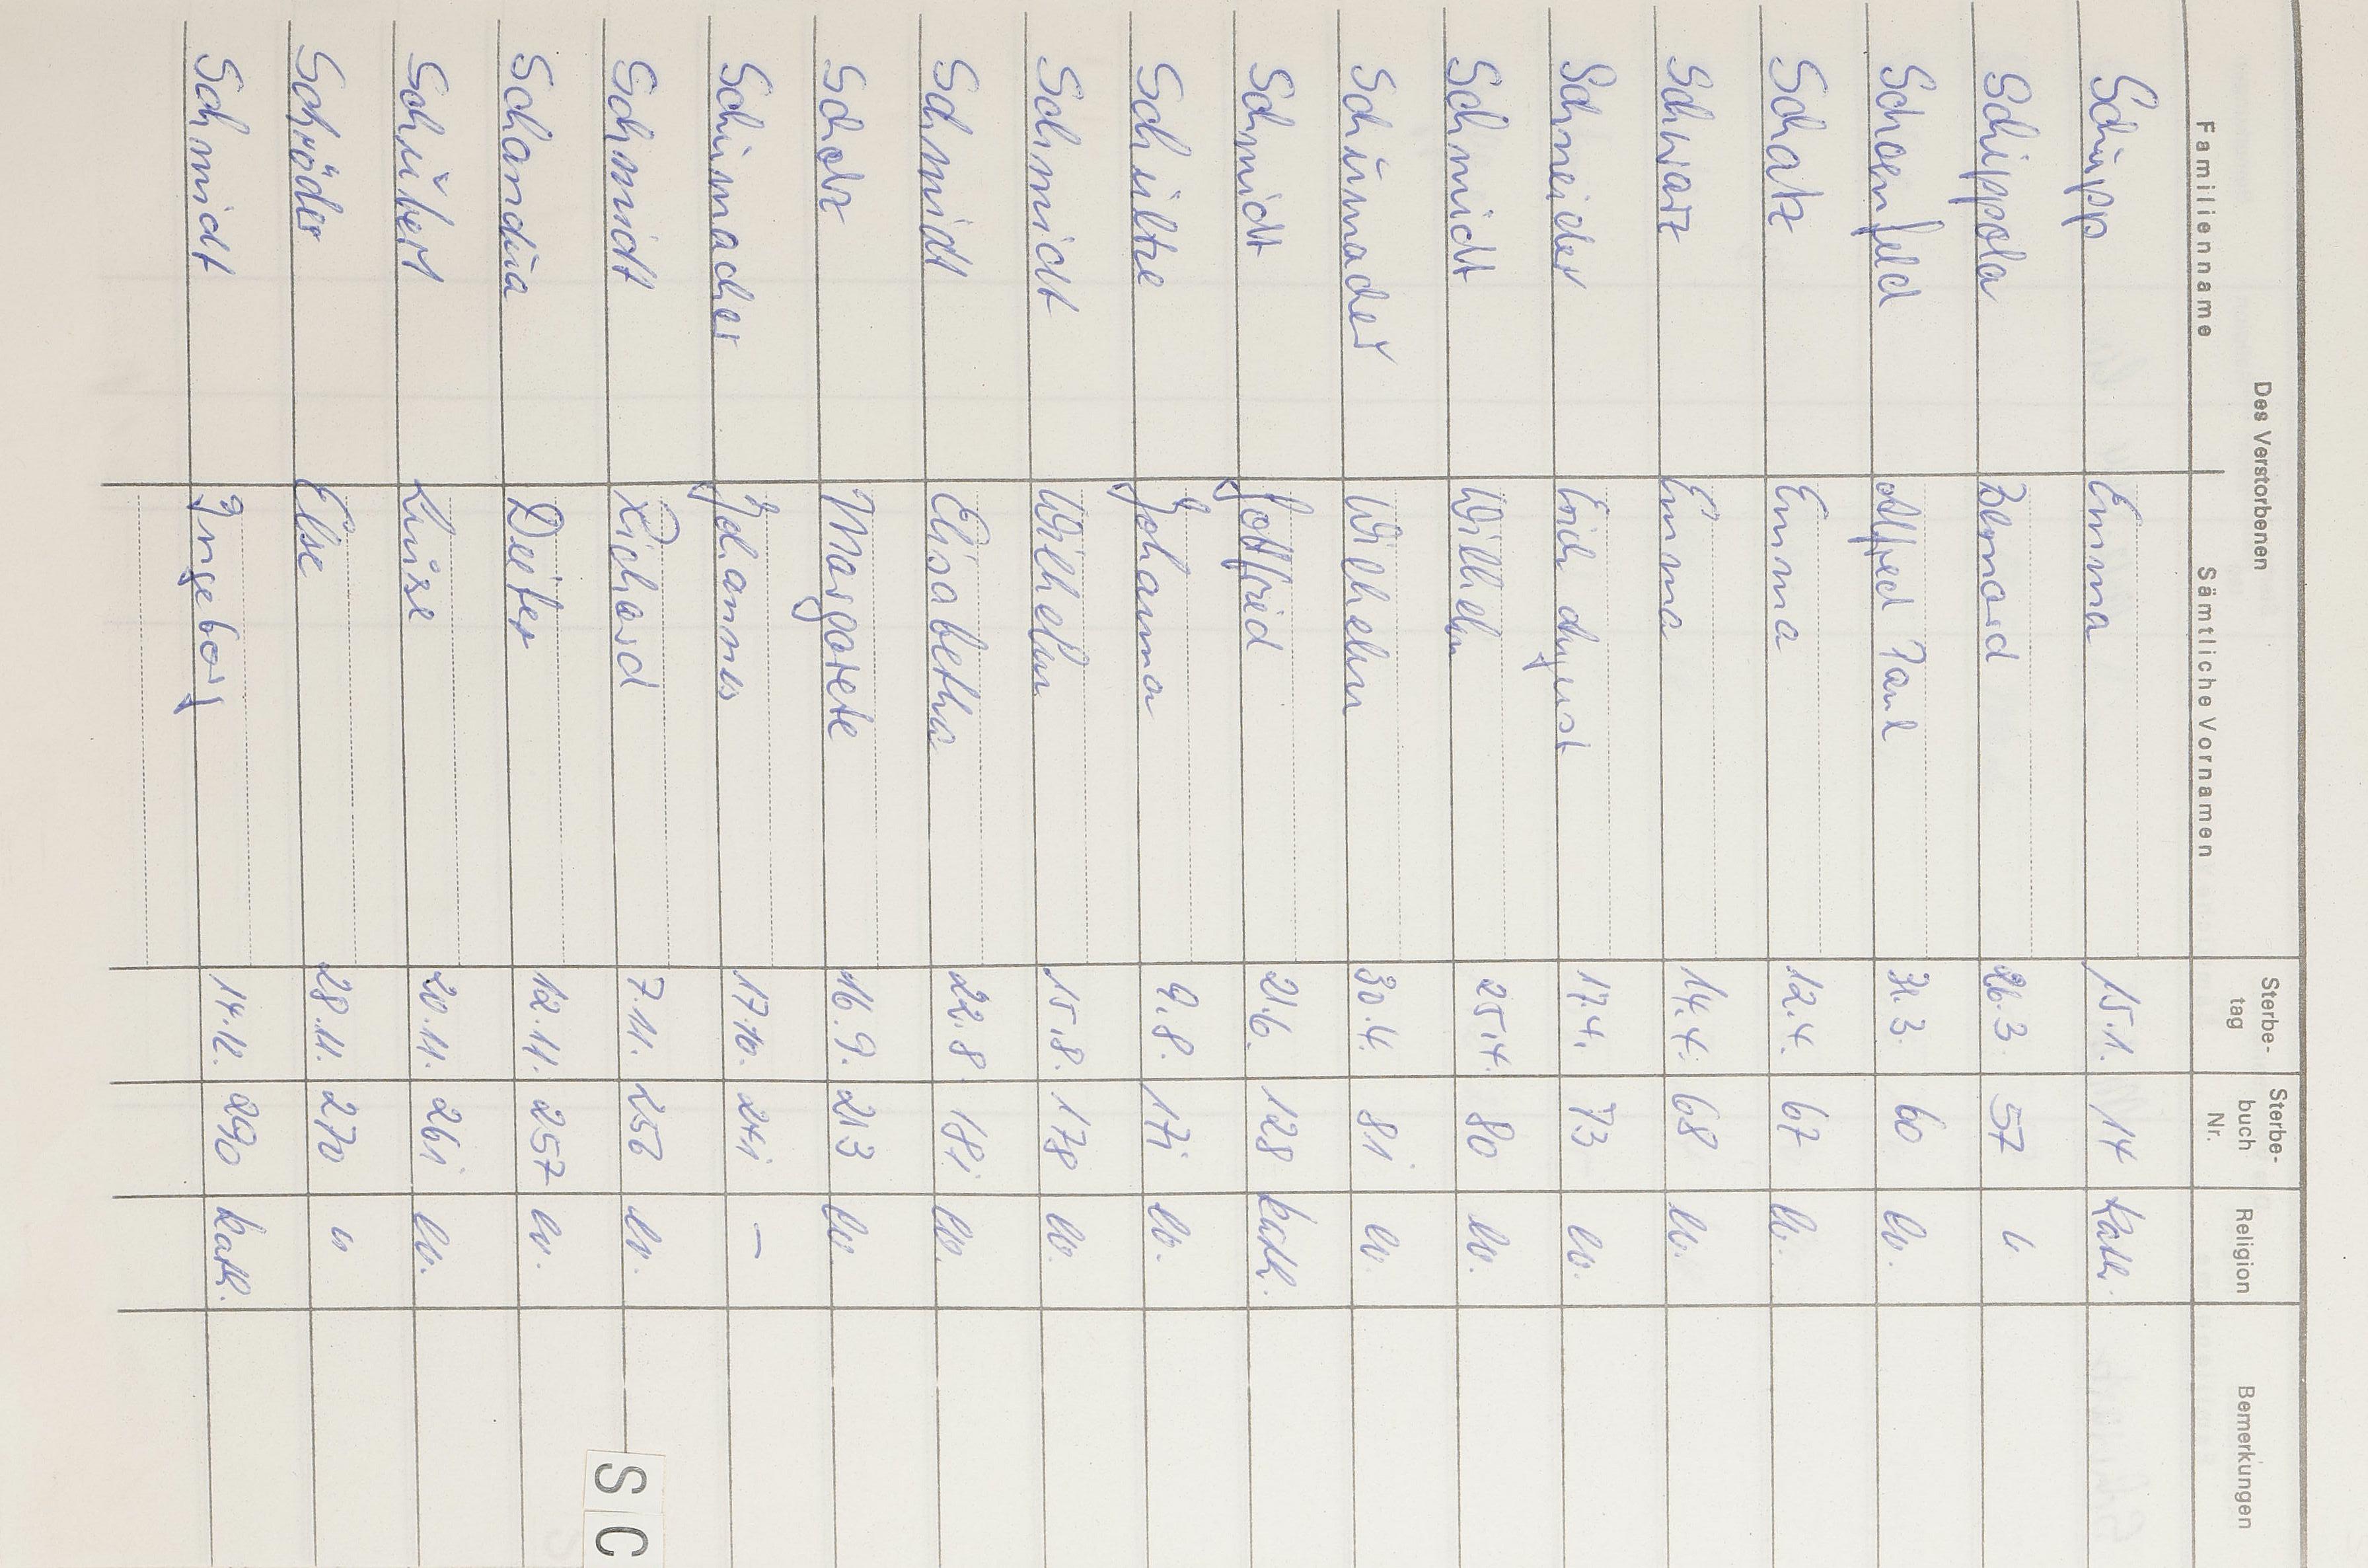 Des Verstorbenen
Familienname Sämtliche Vornamen Sterbe-tag Sterbe-buch Nr. Religion Bemerkungen
Schupp Emma 15.1. 14 kath.
Schippola Bernard 26.3. 57 "
Schoenfeld Alfred Paul 31.3. 60 ev.
Schatz Emma 12.4. 67 ev.
Schwarz Emma 14.4. 68 ev.
Schneider Erich August 17.4. 73 ev.
Schmidt Wilhelm 25.4. 80 ev.
Schümacher Wilhelm 30.4. 81 ev.
Schmidt Gottfried 21.6. 128 kath.
Schültze Johanna 9.8. 171 ev.
Schmidt Wilhelm 15.8. 178 ev.
Schmidt Elisabetha 22.8. 181 ev.
Scholz Margarete 16.9. 213 ev.
Schumacher Johannes 17.10. 241 –
Schmidt Richard 7.11. 256 ev.
Schandua Dieter 12.11. 257 ev.
Schubert Luise 20.11. 261 ev.
Schröder Else 28.11. 270 "
Schmidt Ingeborg 14.12. 290 kath.
S C